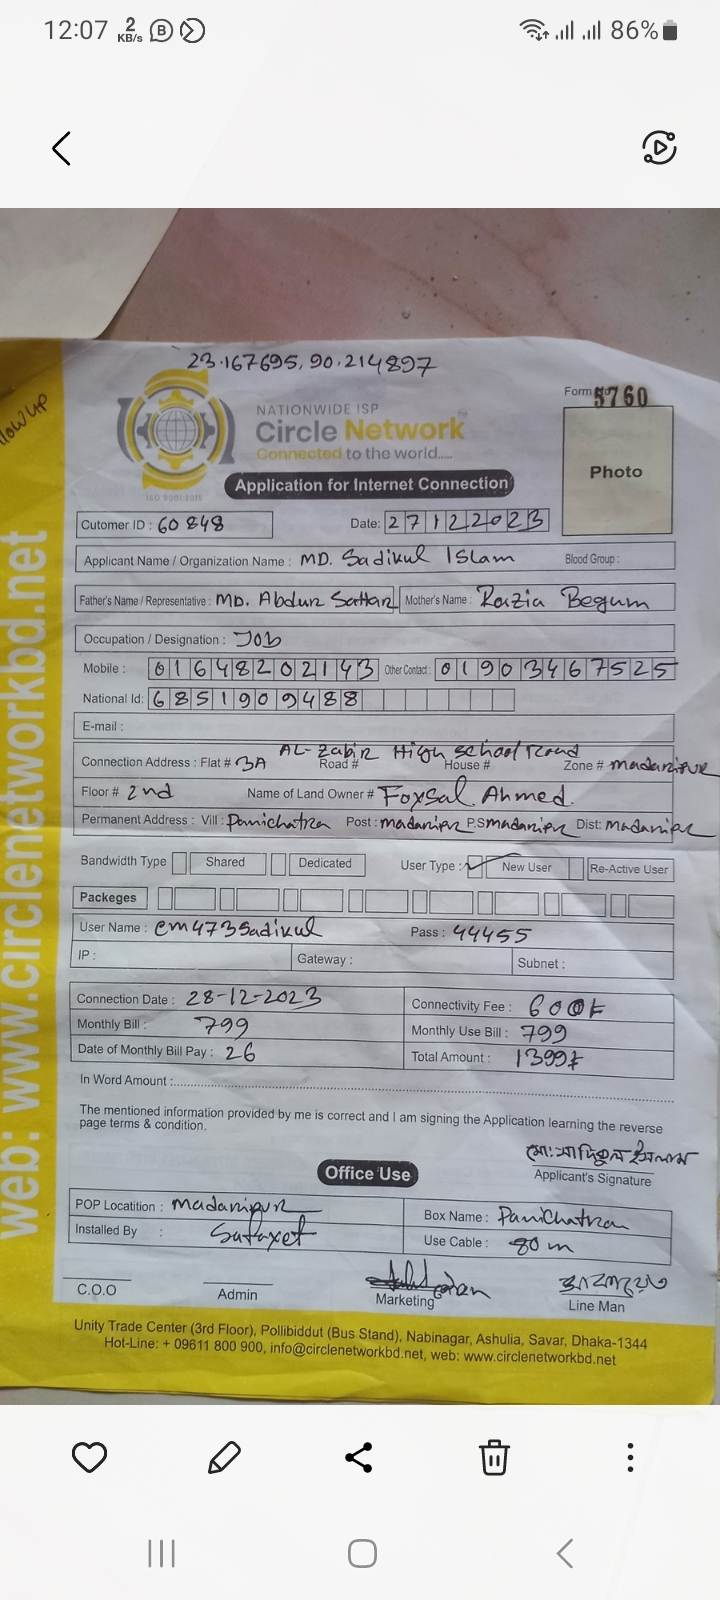 12:07 2 KB/s B 86%
23.167695, 90.214897
NATIONWIDE ISP
Form No 5760
Circle Network™
Connected to the world.....
ISO 9001:2015
Photo
Application for Internet Connection
Cutomer ID : 60848 Date: 27122023
Applicant Name / Organization Name : MD. Sadikul Islam Blood Group :
Father's Name / Representative : MD. Abdur Sattar Mother's Name : Razia Begum
Occupation / Designation : Job
Mobile : 01648202143 Other Contact : 01903467525
National Id: 6851909488
E-mail :
AL-Zabir High School Road
Connection Address : Flat # 3A Road # House # Zone # madaripur
Floor # 2nd Name of Land Owner # Foysal Ahmed.
Permanent Address : Vill : Panichatra Post : madaripr P.S madaripr Dist: madaripr
Bandwidth Type Shared Dedicated User Type : New User Re-Active User
Packeges
User Name : cm473sadikul Pass : 44455
IP : Gateway : Subnet :
Connection Date : 28-12-2023 Connectivity Fee : 600৳
Monthly Bill : 799 Monthly Use Bill : 799
Date of Monthly Bill Pay : 26 Total Amount : 1399৳
In Word Amount :
The mentioned information provided by me is correct and I am signing the Application learning the reverse
page terms & condition.
মো: সাদিকুল ইসলাম
Applicant's Signature
Office Use
POP Locatition : Madaripur Box Name : Panichatran
Installed By : Safayet Use Cable : 80 m
C.O.O Admin Marketing Line Man
Unity Trade Center (3rd Floor), Pollibiddut (Bus Stand), Nabinagar, Ashulia, Savar, Dhaka-1344
Hot-Line: + 09611 800 900, info@circlenetworkbd.net, web: www.circlenetworkbd.net
web: www.circlenetworkbd.net